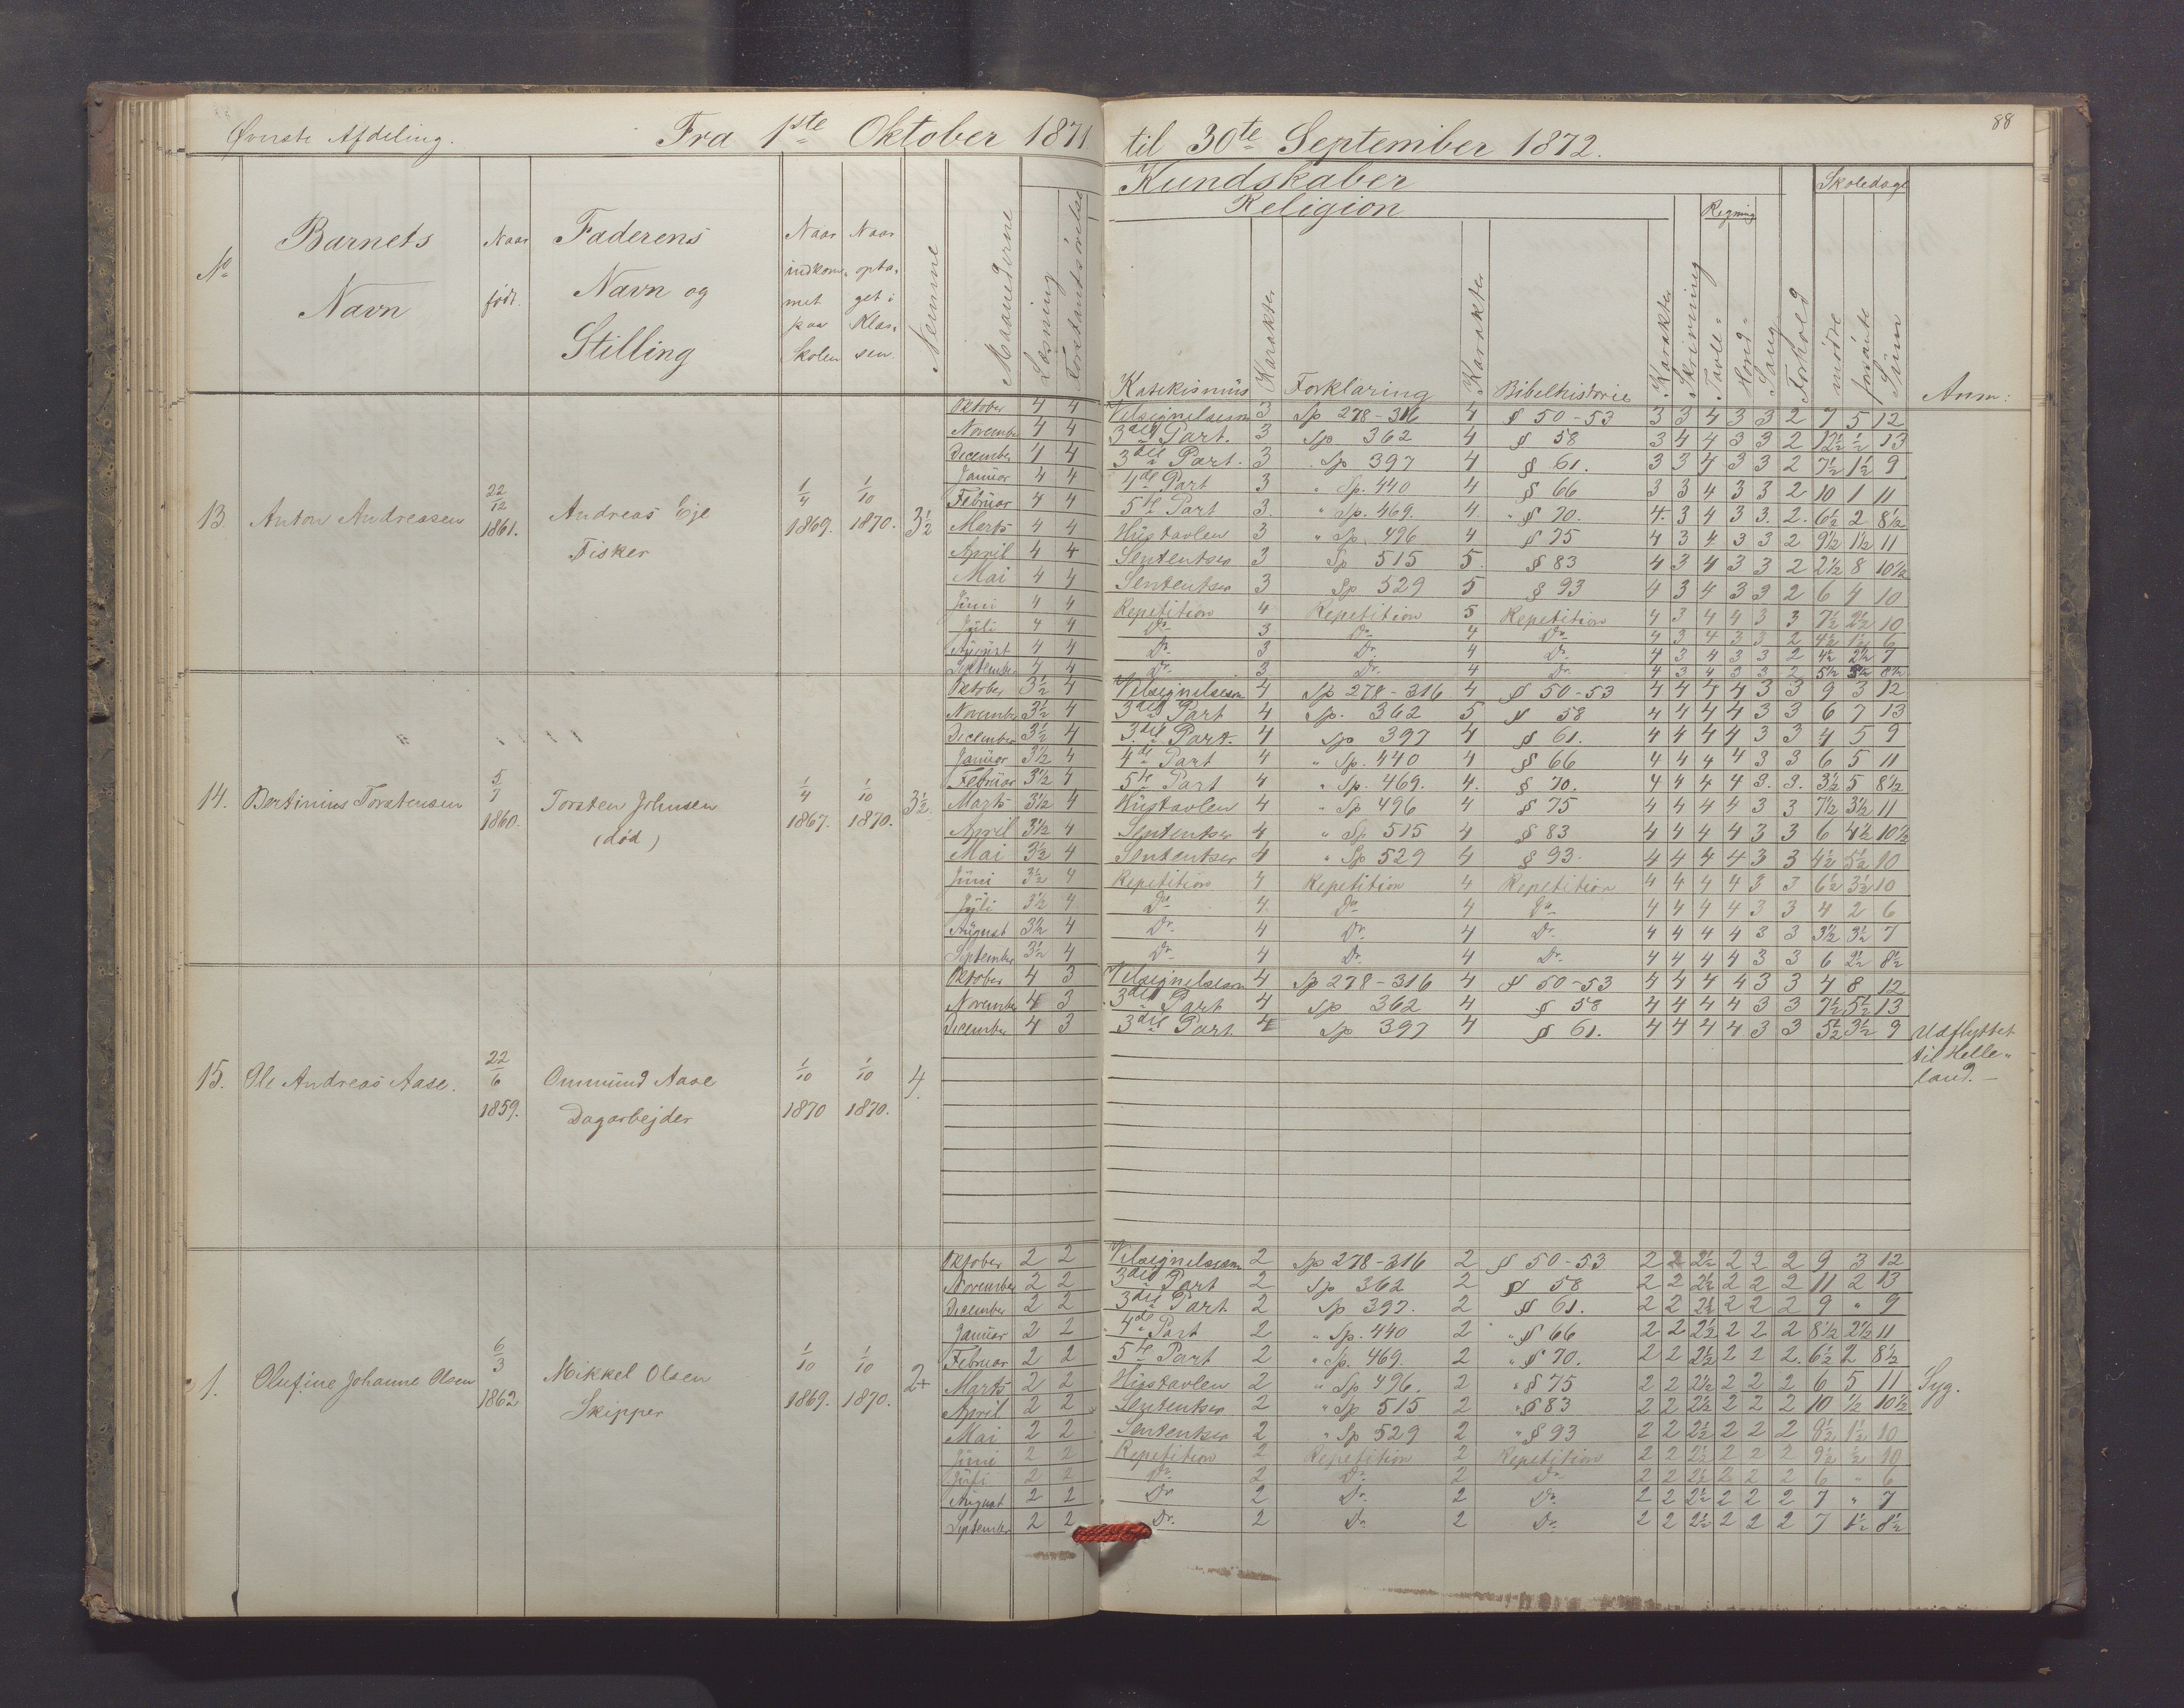 Øverste Afdeling. Fra 1ste Oktober 1871 til 30te September 1872. 88
Kundskaber Skoledage
Religion Regning
No Barnets Navn Naar født. Faderens Navn og Stilling Naar indkommet paa Skolen Naar optaget i Klassen Nemme Maanederne Læsning Forstandsøvelse Katekismus Karakter Forklaring Karakter Bibelhistorie Karakter Skrivning Tavle- Hoved- Sang Forhold mødte forsømte Sum Anm:
13. Anton Andreassen 22/12 1861. Andreas Eje Fisker 1/4 1869. 1/10 1870. 3½
Oktober 4 4 Velsignelsen 3 Sp 278-316 4 § 50-53 3 3 4 3 3 2 7 5 12
November 4 4 3die Part. 3 Sp 362 4 § 58 3 4 4 3 3 2 12½ ½ 13
December 4 4 3die Part. 3 Sp 397 4 § 61. 3 3 4 3 3 2 7½ 1½ 9
Januar 4 4 4de Part 3 " Sp. 440 4 § 66 3 3 4 3 3 2 10 1 11
Februar 4 4 5te Part 3. " Sp. 469. 4 " § 70. 4. 3 4 3 3. 2. 6½ 2 8½
Marts 4 4 Hustavlen 3 " Sp. 496 4 § 75 4 3 4 3 3 2 9½ 1½ 11
April 4 4 Sententser 3 Sp 515 5. § 83 4 3 4 3 3 2 2½ 8 10½
Mai 4 4 Sententser 3 Sp 529 5 § 93 4 3 4 3 3 2 6 4 10
Juni 4 4 Repetition 4 Repetition 5 Repetition 4 3 4 4 3 3 7½ 2½ 10
Juli 4 4 Do 3 Do 4 Do 4 3 4 3 3 2 4½ 1½ 6
August 4 4 Do. 3 Do. 4 Do. 4 3 4 3 3 2 4½ 2½ 7
September 4 4 Do. 3 Do. 4 Do. 4 3 4 3 3 2 5½ 8½
14. Bertinius Torstensen 5/7 1860. Torsten Johnsen (død) 1/4 1867. 1/10 1870. 3½.
Oktober 3½ 4 Velsignelsen 4 Sp 278-316 4 § 50-53 4 4 4 4 3 3 9 3 12
November 3½ 4 3die Part 4 Sp. 362 5 § 58 4 4 4 4 3 3 6 7 13
December 3½ 4 3die Part. 4 Sp 397 4 § 61. 4 4 4 4 3 3 4 5 9
Januar 3½ 4 4de Part 4 " Sp. 440 4 § 66 4 4 4 4 3 3 6 5 11
Februar 3½ 4 5te Part 4 " Sp. 469. 4. § 70. 4 4 4 4 3. 3. 3½ 5 8½
Marts 3½ 4 Hustavlen 4 " Sp 496 4 § 75 4 4 4 4 3 3 7½ 3½ 11
April 3½ 4 Sententser 4 " Sp 515 4 § 83 4 4 4 4 3 3 6 4½ 10½
Mai 3½ 4 Sententser 4 " Sp 529 4 § 93. 4 4 4 4 3 3 4½ 5½ 10
Juni 3½ 4 Repetition 4 Repetition 4 Repetition 4 4 4 4 3 3 6½ 3½ 10
Juli 3½ 4 Do 4. Do 4 Do 4 4 4 4 3 3 4 2 6
August 3½ 4 Do. 4 Do. 4 Do. 4 4 4 4 3 3 3½ 3½ 7
September 3½ 4 Do. 4 Do. 4 Do. 4 4 4 4 3 3 6 2½ 8½
15. Ole Andreas Aase. 22/6 1859. Ommund Aase Dagarbejder 1/10 1870 1/10 1870. 4.
Oktober 4 3 Velsignelsen 4 Sp 278-316 4 § 50-53 4 4 4 4 3 3 4 8 12
November 4 3 3die Part 4 Sp 362 4 § 58 4 4 4 4 3 3 7½ 5½ 13
December 4 3 3die Part. 4 Sp 397 4 § 61. 4 4 4 4 3 3 5½ 3½ 9 Udflyttet
til Helle-
land. -
1. Olufine Johanne Olsen 6/3 1862 Mikkel Olsen Skipper 1/10 1869. 1/10 1870. 2+
Oktober 2 2 Velsignelsen 2 Sp 278-316 2 § 50-53 2 2 2½ 2 2 2 9 3 12
November 2 2 3die Part 2 Sp 362 2 § 58 2 2 2½ 2 2 2 11 2 13
December 2 2 3die Part 2 Sp 397. 2 § 61. 2 2 2½ 2 2 2 9 " 9
Januar 2 2 4de Part 2 " Sp. 440 2 " § 66 2 2 2½ 2 2 2 8½ 2½ 11
Februar 2 2 5te Part 2 " Sp. 469. 2 " § 70. 2 2 2½ 2 2 2. 6½ 2 8½
Marts 2 2 Hustavlen 2 " Sp 496. 2 " § 75 2 2 2½ 2 2 2 6 5 11 Syg.
April 2 2 Sententser 2 " Sp 515 2 " § 83 2 2 2½ 2 2 2 10 ½ 10½
Mai 2 2 Sententser 2 " Sp 529 2 " § 93 2 2 2½ 2 2 2 8½ 1½ 10
Juni 2 2 Repetition 2 Repetition 2 Repetition 2 2 2½ 2 2 2 9½ ½ 10
Juli 2 2 Do 2 Do. 2 Do 2 2 2½ 2 2 2 6 " 6
August 2 2 Do 2 Do. 2 Do. 2 2 2½ 2 2 2 7 " 7
September 2 2 Do. 2 Do. 2 Do. 2 2 2½ 2 2 2 7 1½ 8½